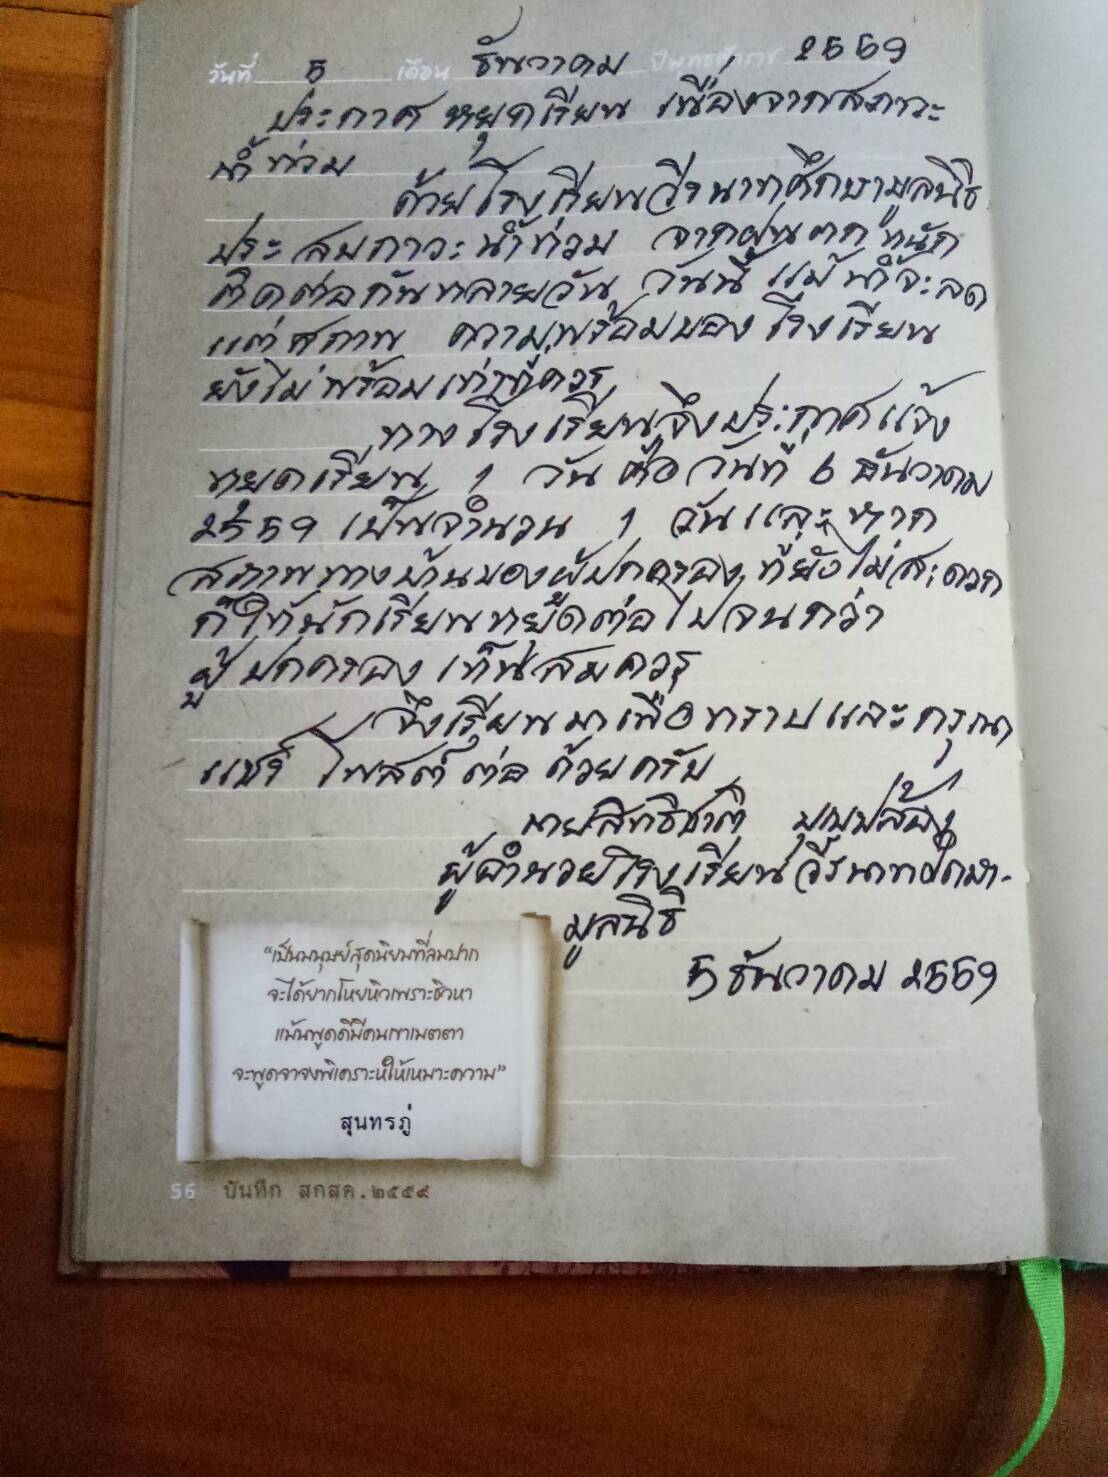 วันที่ 5 เดือน ธันวาคม ปีพุทธศักราช 2559
ประกาศ หยุดเรียน เนื่องจากสภาวะ
น้ำท่วม
ด้วยโรงเรียนวีรนาทศึกษามูลนิธิ
ประสบภาวะน้ำท่วม จากฝนตกหนัก
ติดต่อกันหลายวัน วันนี้ แม้น้ำจะลด
แต่สภาพ ความพร้อมของโรงเรียน
ยังไม่พร้อมเท่าที่ควร
ทางโรงเรียนจึงประกาศแจ้ง
หยุดเรียน 1 วัน คือ วันที่ 6 ธันวาคม
2559 เป็นจำนวน 1 วันและหาก
สภาพทางบ้านของผู้ปกครอง ที่ยังไม่สะดวก
ก็ให้นักเรียนหยุดต่อไปจนกว่า
ผู้ปกครอง เห็นสมควร
จึงเรียนมาเพื่อทราบและกรุณา
แชร์ โพสต์ ต่อ ด้วยครับ
นายสิทธิชาติ
ผู้อำนวยโรงเรียนวีรนาทศึกษา-
มูลนิธิ
5 ธันวาคม 2559
“เป็นมนุษย์สุดนิยมที่ลมปาก
จะได้ยากโหยหิวเพราะชิวหา
แม้นพูดดีมีคนเขาเมตตา
จะพูดจาจงพิเคราะห์ให้เหมาะความ”
สุนทรภู่
56 บันทึก สกสค.๒๕๕๙